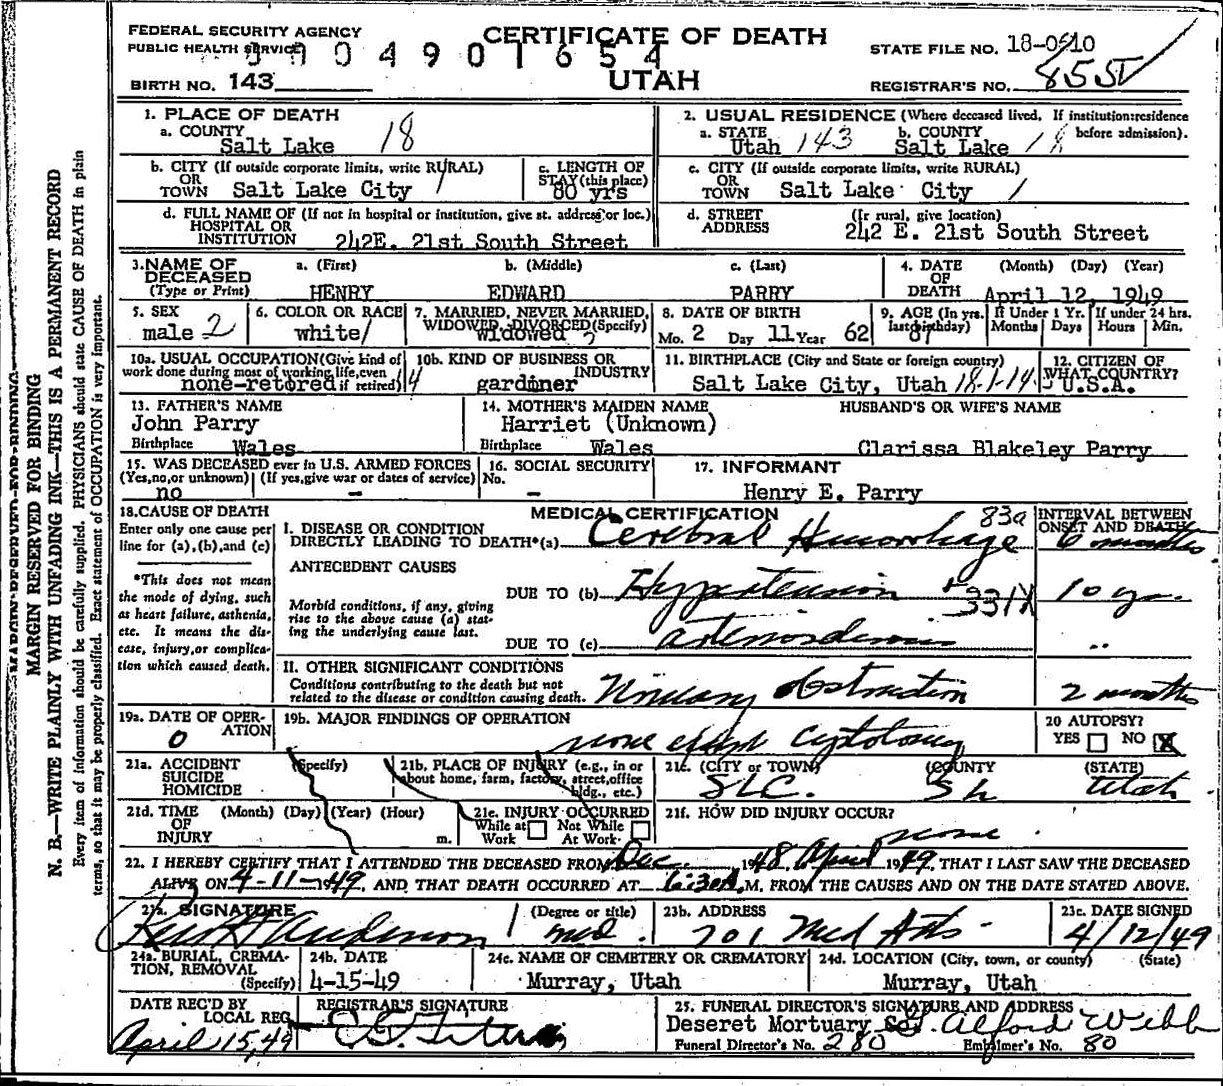 FEDERAL SECURITY AGENCY
PUBLIC HEALTH SERVICE
CERTIFICATE OF DEATH
UTAH
STATE FILE NO. 18-0510
BIRTH NO. 143
REGISTRAR'S NO. 855
1. PLACE OF DEATH
a. COUNTY
Salt Lake 18
2. USUAL RESIDENCE (Where deceased lived. If institution:residence before admission).
a. STATE Utah 143 b. COUNTY Salt Lake 18
b. CITY (If outside corporate limits, write RURAL)
OR TOWN Salt Lake City 1
c. LENGTH OF STAY (this place)
80 yrs
c. CITY (If outside corporate limits, write RURAL)
OR TOWN Salt Lake City 1
d. FULL NAME OF (If not in hospital or institution, give st. address or loc.)
HOSPITAL OR INSTITUTION 242E. 21st South Street
d. STREET ADDRESS (If rural, give location)
242 E. 21st South Street
3. NAME OF DECEASED
(Type or Print)
a. (First) b. (Middle) c. (Last)
HENRY EDWARD PARRY
4. DATE OF DEATH (Month) (Day) (Year)
April 12, 1949
5. SEX
male 2
6. COLOR OR RACE
white/
7. MARRIED, NEVER MARRIED, WIDOWED, DIVORCED (Specify)
widowed
8. DATE OF BIRTH
Mo. 2 Day 11 Year 62
9. AGE (In yrs. last birthday) If Under 1 Yr. If under 24 hrs.
Months Days Hours Min.
87
10a. USUAL OCCUPATION (Give kind of work done during most of working life, even if retired)
none-retored
10b. KIND OF BUSINESS OR INDUSTRY
gardiner
11. BIRTHPLACE (City and State or foreign country)
Salt Lake City, Utah 18-1-14
12. CITIZEN OF WHAT COUNTRY?
U.S.A.
13. FATHER'S NAME
John Parry
Birthplace Wales
14. MOTHER'S MAIDEN NAME
Harriet (Unknown)
Birthplace Wales
HUSBAND'S OR WIFE'S NAME
Clarissa Blakeley Parry
15. WAS DECEASED ever in U.S. ARMED FORCES
(Yes, no, or unknown) (If yes, give war or dates of service)
no -
16. SOCIAL SECURITY No.
-
17. INFORMANT
Henry E. Parry
18. CAUSE OF DEATH
Enter only one cause per line for (a), (b), and (c)
*This does not mean the mode of dying, such as heart failure, asthenia, etc. It means the disease, injury, or complication which caused death.
MEDICAL CERTIFICATION 83a
INTERVAL BETWEEN ONSET AND DEATH
I. DISEASE OR CONDITION DIRECTLY LEADING TO DEATH*(a) Cerebral Hemorrhage 6 months
ANTECEDENT CAUSES
Morbid conditions, if any, giving rise to the above cause (a) stating the underlying cause last.
DUE TO (b) Hypertension 331X 10 yrs.
DUE TO (c)
II. OTHER SIGNIFICANT CONDITIONS
Conditions contributing to the death but not related to the disease or condition causing death. Urinary obstruction 2 months
19a. DATE OF OPERATION
0
19b. MAJOR FINDINGS OF OPERATION
none except
20 AUTOPSY?
YES NO X
21a. ACCIDENT SUICIDE HOMICIDE (Specify)
21b. PLACE OF INJURY (e.g., in or about home, farm, factory, street, office bldg., etc.)
21c. (CITY or TOWN) (COUNTY (STATE)
SLC. SL Utah
21d. TIME OF INJURY (Month) (Day) (Year) (Hour) m.
21e. INJURY OCCURRED
While at Work Not While At Work
21f. HOW DID INJURY OCCUR?
none.
22. I HEREBY CERTIFY THAT I ATTENDED THE DECEASED FROM Dec 1948 April 1949, THAT I LAST SAW THE DECEASED
ALIVE ON 4-11-1949, AND THAT DEATH OCCURRED AT 6:30A.M. FROM THE CAUSES AND ON THE DATE STATED ABOVE.
23a. SIGNATURE (Degree or title)
Anderson MD.
23b. ADDRESS
701 Med Arts
23c. DATE SIGNED
4/12/49
24a. BURIAL, CREMATION, REMOVAL (Specify)
24b. DATE
4-15-49
24c. NAME OF CEMETERY OR CREMATORY
Murray, Utah
24d. LOCATION (City, town, or county) (State)
Murray, Utah
DATE REC'D BY LOCAL REG.
April 15, 49
REGISTRAR'S SIGNATURE
25. FUNERAL DIRECTOR'S SIGNATURE AND ADDRESS
Deseret Mortuary Co. Alford Webb
Funeral Director's No. 280 Embalmer's No. 80
MARGIN RESERVED FOR BINDING
N. B.—WRITE PLAINLY WITH UNFADING INK—THIS IS A PERMANENT RECORD
Every item of information should be carefully supplied. PHYSICIANS should state CAUSE OF DEATH in plain
terms, so it may be properly classified. Exact statement of OCCUPATION is very important.